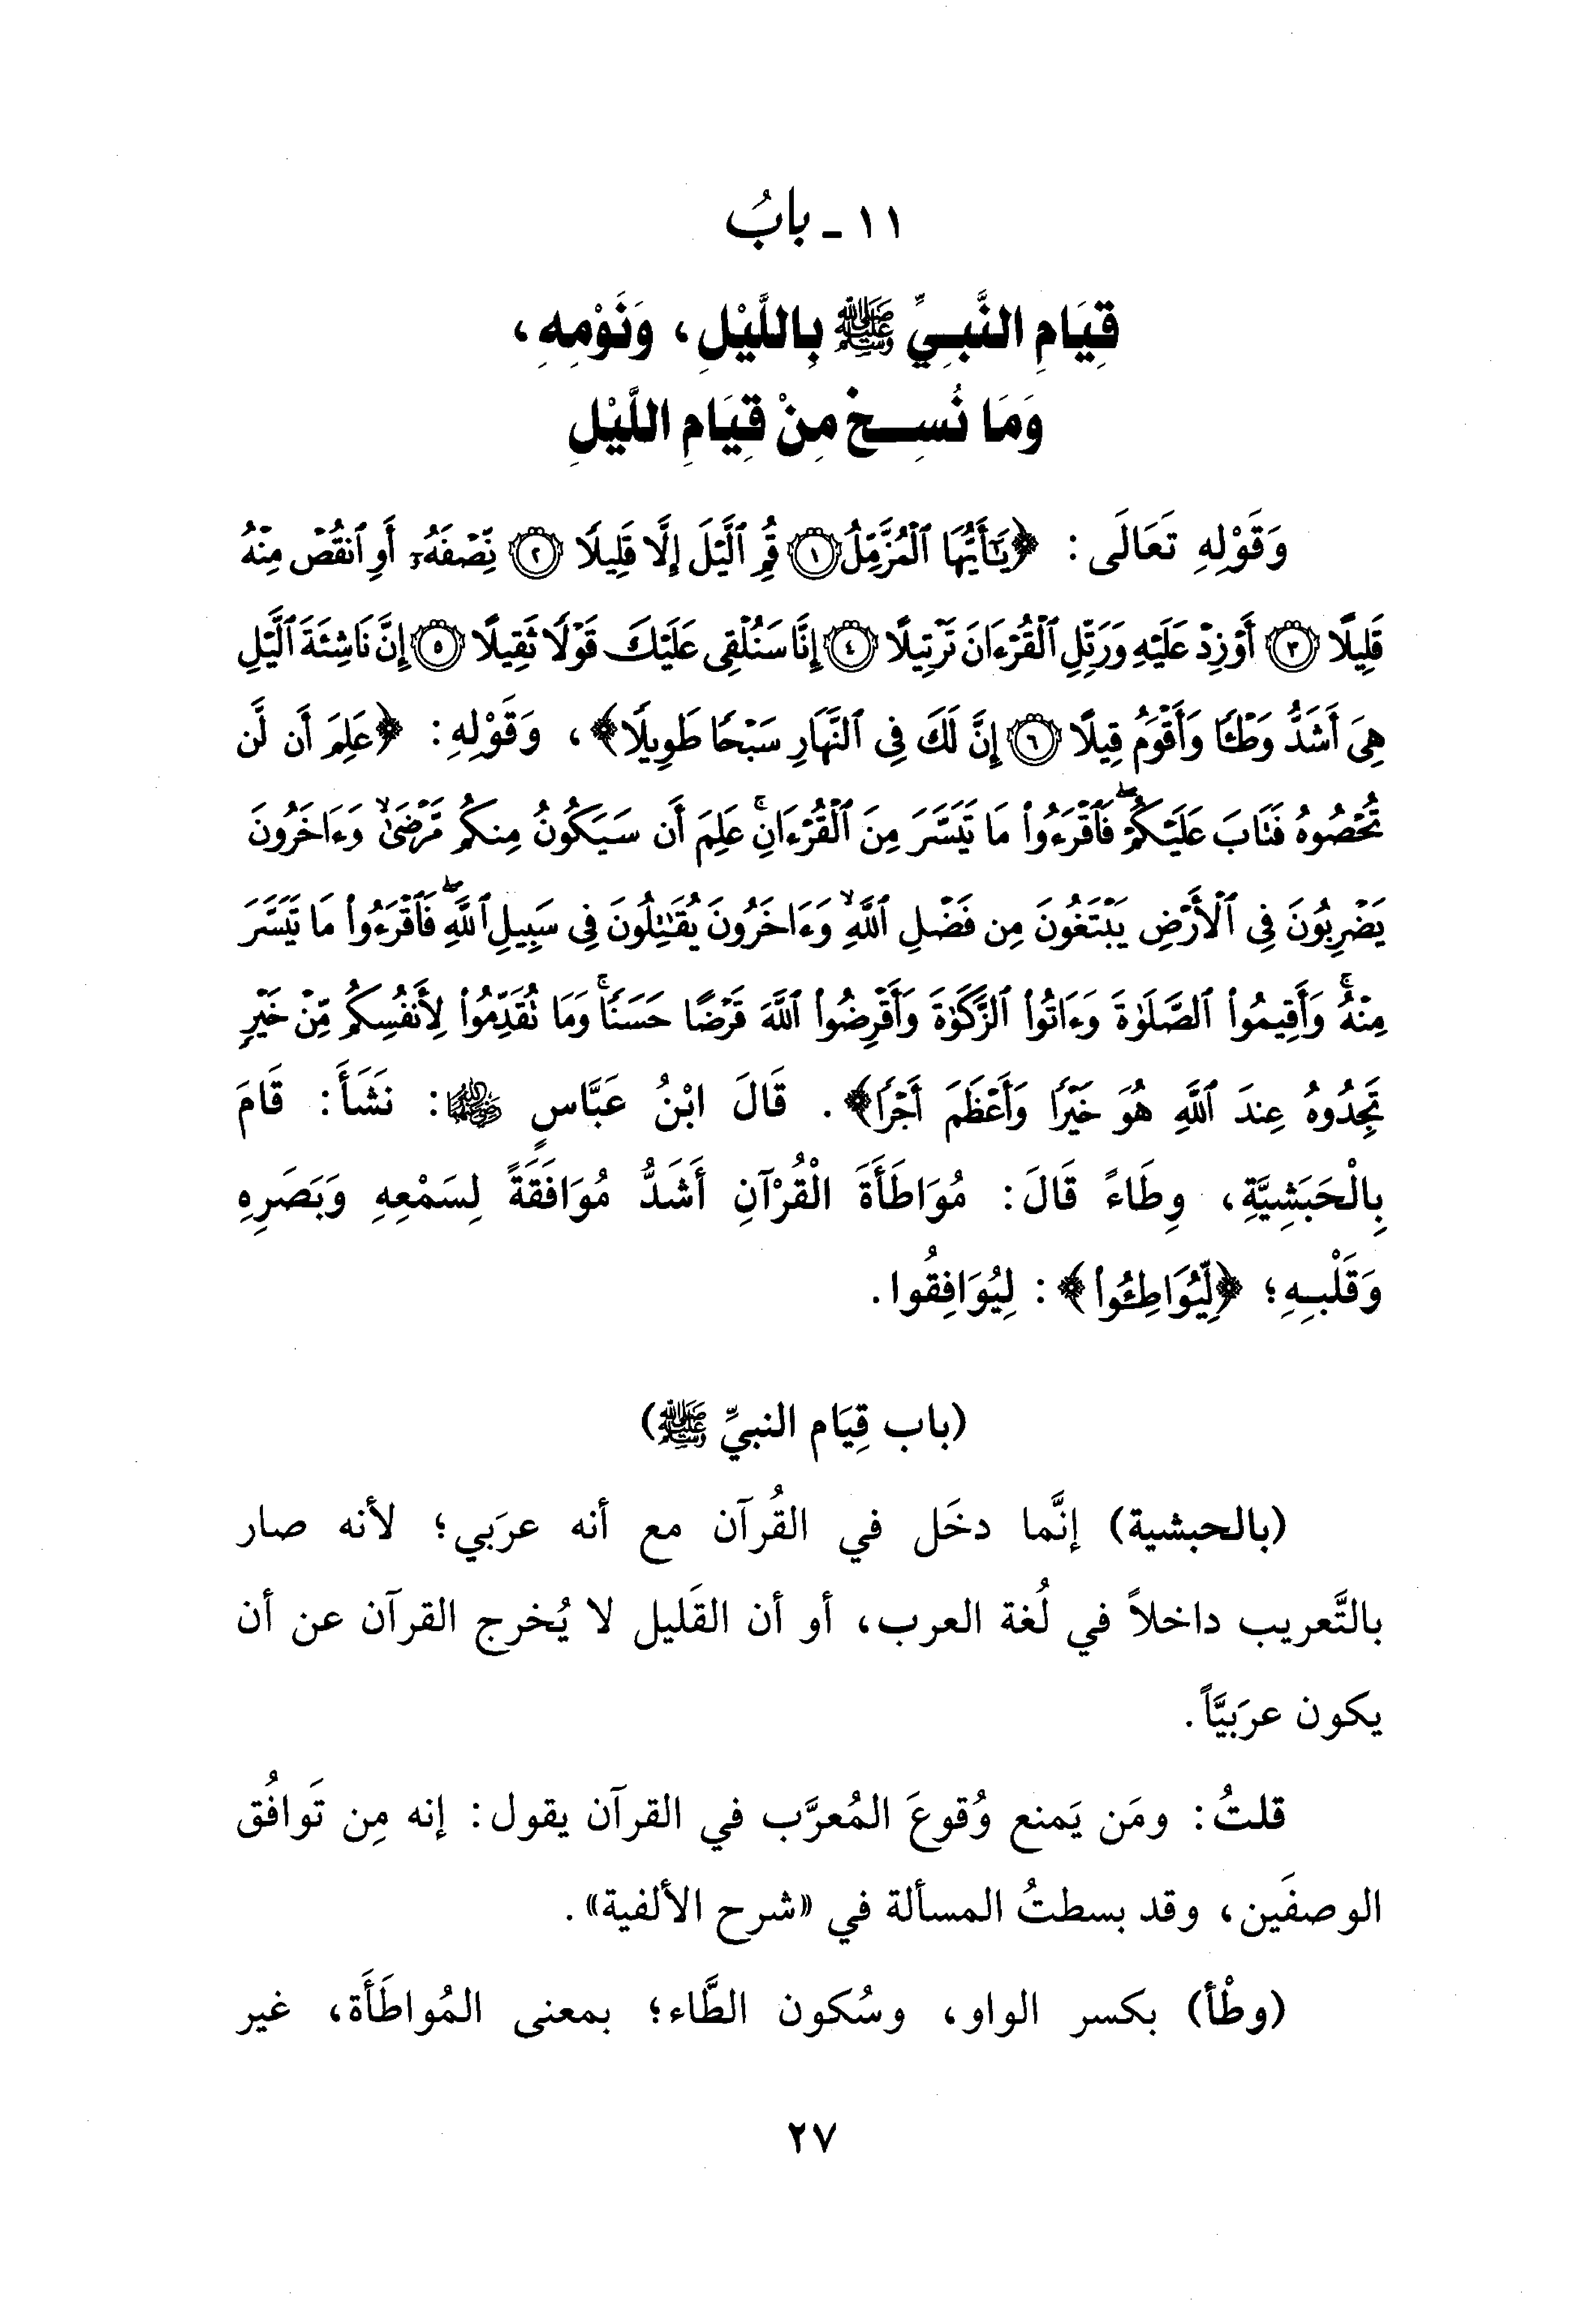 ١١ ـ بابُ
قِيَامِ النَّبِيِّ ﷺ بِاللَّيْلِ، وَنَوْمِهِ،
وَمَا نُسِخَ مِنْ قِيَامِ اللَّيْلِ
وَقَوْلِهِ تَعَالَى: ﴿يَٰٓأَيُّهَا ٱلْمُزَّمِّلُ ١ قُمِ ٱلَّيْلَ إِلَّا قَلِيلًا ٢ نِّصْفَهُۥٓ أَوِ ٱنقُصْ مِنْهُ
قَلِيلًا ٣ أَوْ زِدْ عَلَيْهِ وَرَتِّلِ ٱلْقُرْءَانَ تَرْتِيلًا ٤ إِنَّا سَنُلْقِى عَلَيْكَ قَوْلًا ثَقِيلًا ٥ إِنَّ نَاشِئَةَ ٱلَّيْلِ
هِىَ أَشَدُّ وَطْـًٔا وَأَقْوَمُ قِيلًا ٦ إِنَّ لَكَ فِى ٱلنَّهَارِ سَبْحًا طَوِيلًا﴾، وَقَوْلِهِ: ﴿عَلِمَ أَن لَّن
تُحْصُوهُ فَتَابَ عَلَيْكُمْ ۖ فَٱقْرَءُوا۟ مَا تَيَسَّرَ مِنَ ٱلْقُرْءَانِ ۚ عَلِمَ أَن سَيَكُونُ مِنكُم مَّرْضَىٰ ۙ وَءَاخَرُونَ
يَضْرِبُونَ فِى ٱلْأَرْضِ يَبْتَغُونَ مِن فَضْلِ ٱللَّهِ ۙ وَءَاخَرُونَ يُقَٰتِلُونَ فِى سَبِيلِ ٱللَّهِ ۖ فَٱقْرَءُوا۟ مَا تَيَسَّرَ
مِنْهُ ۚ وَأَقِيمُوا۟ ٱلصَّلَوٰةَ وَءَاتُوا۟ ٱلزَّكَوٰةَ وَأَقْرِضُوا۟ ٱللَّهَ قَرْضًا حَسَنًا ۚ وَمَا تُقَدِّمُوا۟ لِأَنفُسِكُم مِّنْ خَيْرٍ
تَجِدُوهُ عِندَ ٱللَّهِ هُوَ خَيْرًا وَأَعْظَمَ أَجْرًا﴾. قَالَ ابْنُ عَبَّاسٍ رضي الله عنهما: نَشَأَ: قَامَ
بِالْحَبَشِيَّةِ، وِطَاءً قَالَ: مُوَاطَأَةَ الْقُرْآنِ أَشَدُّ مُوَافَقَةً لِسَمْعِهِ وَبَصَرِهِ
وَقَلْبِهِ؛ ﴿لِّيُوَاطِـُٔوا۟﴾: لِيُوَافِقُوا.
(باب قِيَام النبيِّ ﷺ)
(بالحبشية) إنَّما دخَل في القُرآن مع أنه عرَبي؛ لأنه صار
بالتَّعريب داخلاً في لُغة العرب، أو أن القَليل لا يُخرج القرآن عن أن
يكون عرَبيَّاً.
قلتُ: ومَن يَمنع وُقوعَ المُعرَّب في القرآن يقول: إنه مِن تَوافُق
الوصفَين، وقد بسطتُ المسألة في «شرح الألفية».
(وطْأ) بكسر الواو، وسُكون الطَّاء؛ بمعنى المُواطَأَة، غير
٢٧